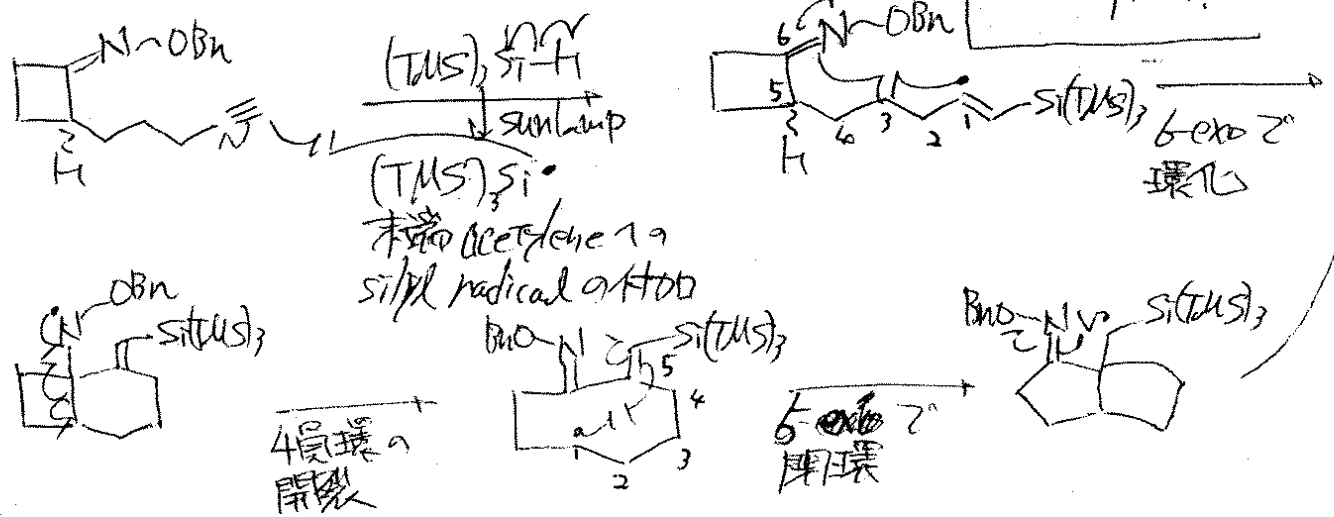 N~OBn
H
(TMS)3Si-H
sunlamp
(TMS)3Si•
末端acetyleneへの
silyl radicalの付加
6
N~OBn
5
4
3
2
1
Si(TMS)3
H
6-exoで
環化
N
OBn
Si(TMS)3
4員環の
開裂
BnO
N
Si(TMS)3
5
4
1
2
3
5-exoで
閉環
BnO
N
Si(TMS)3